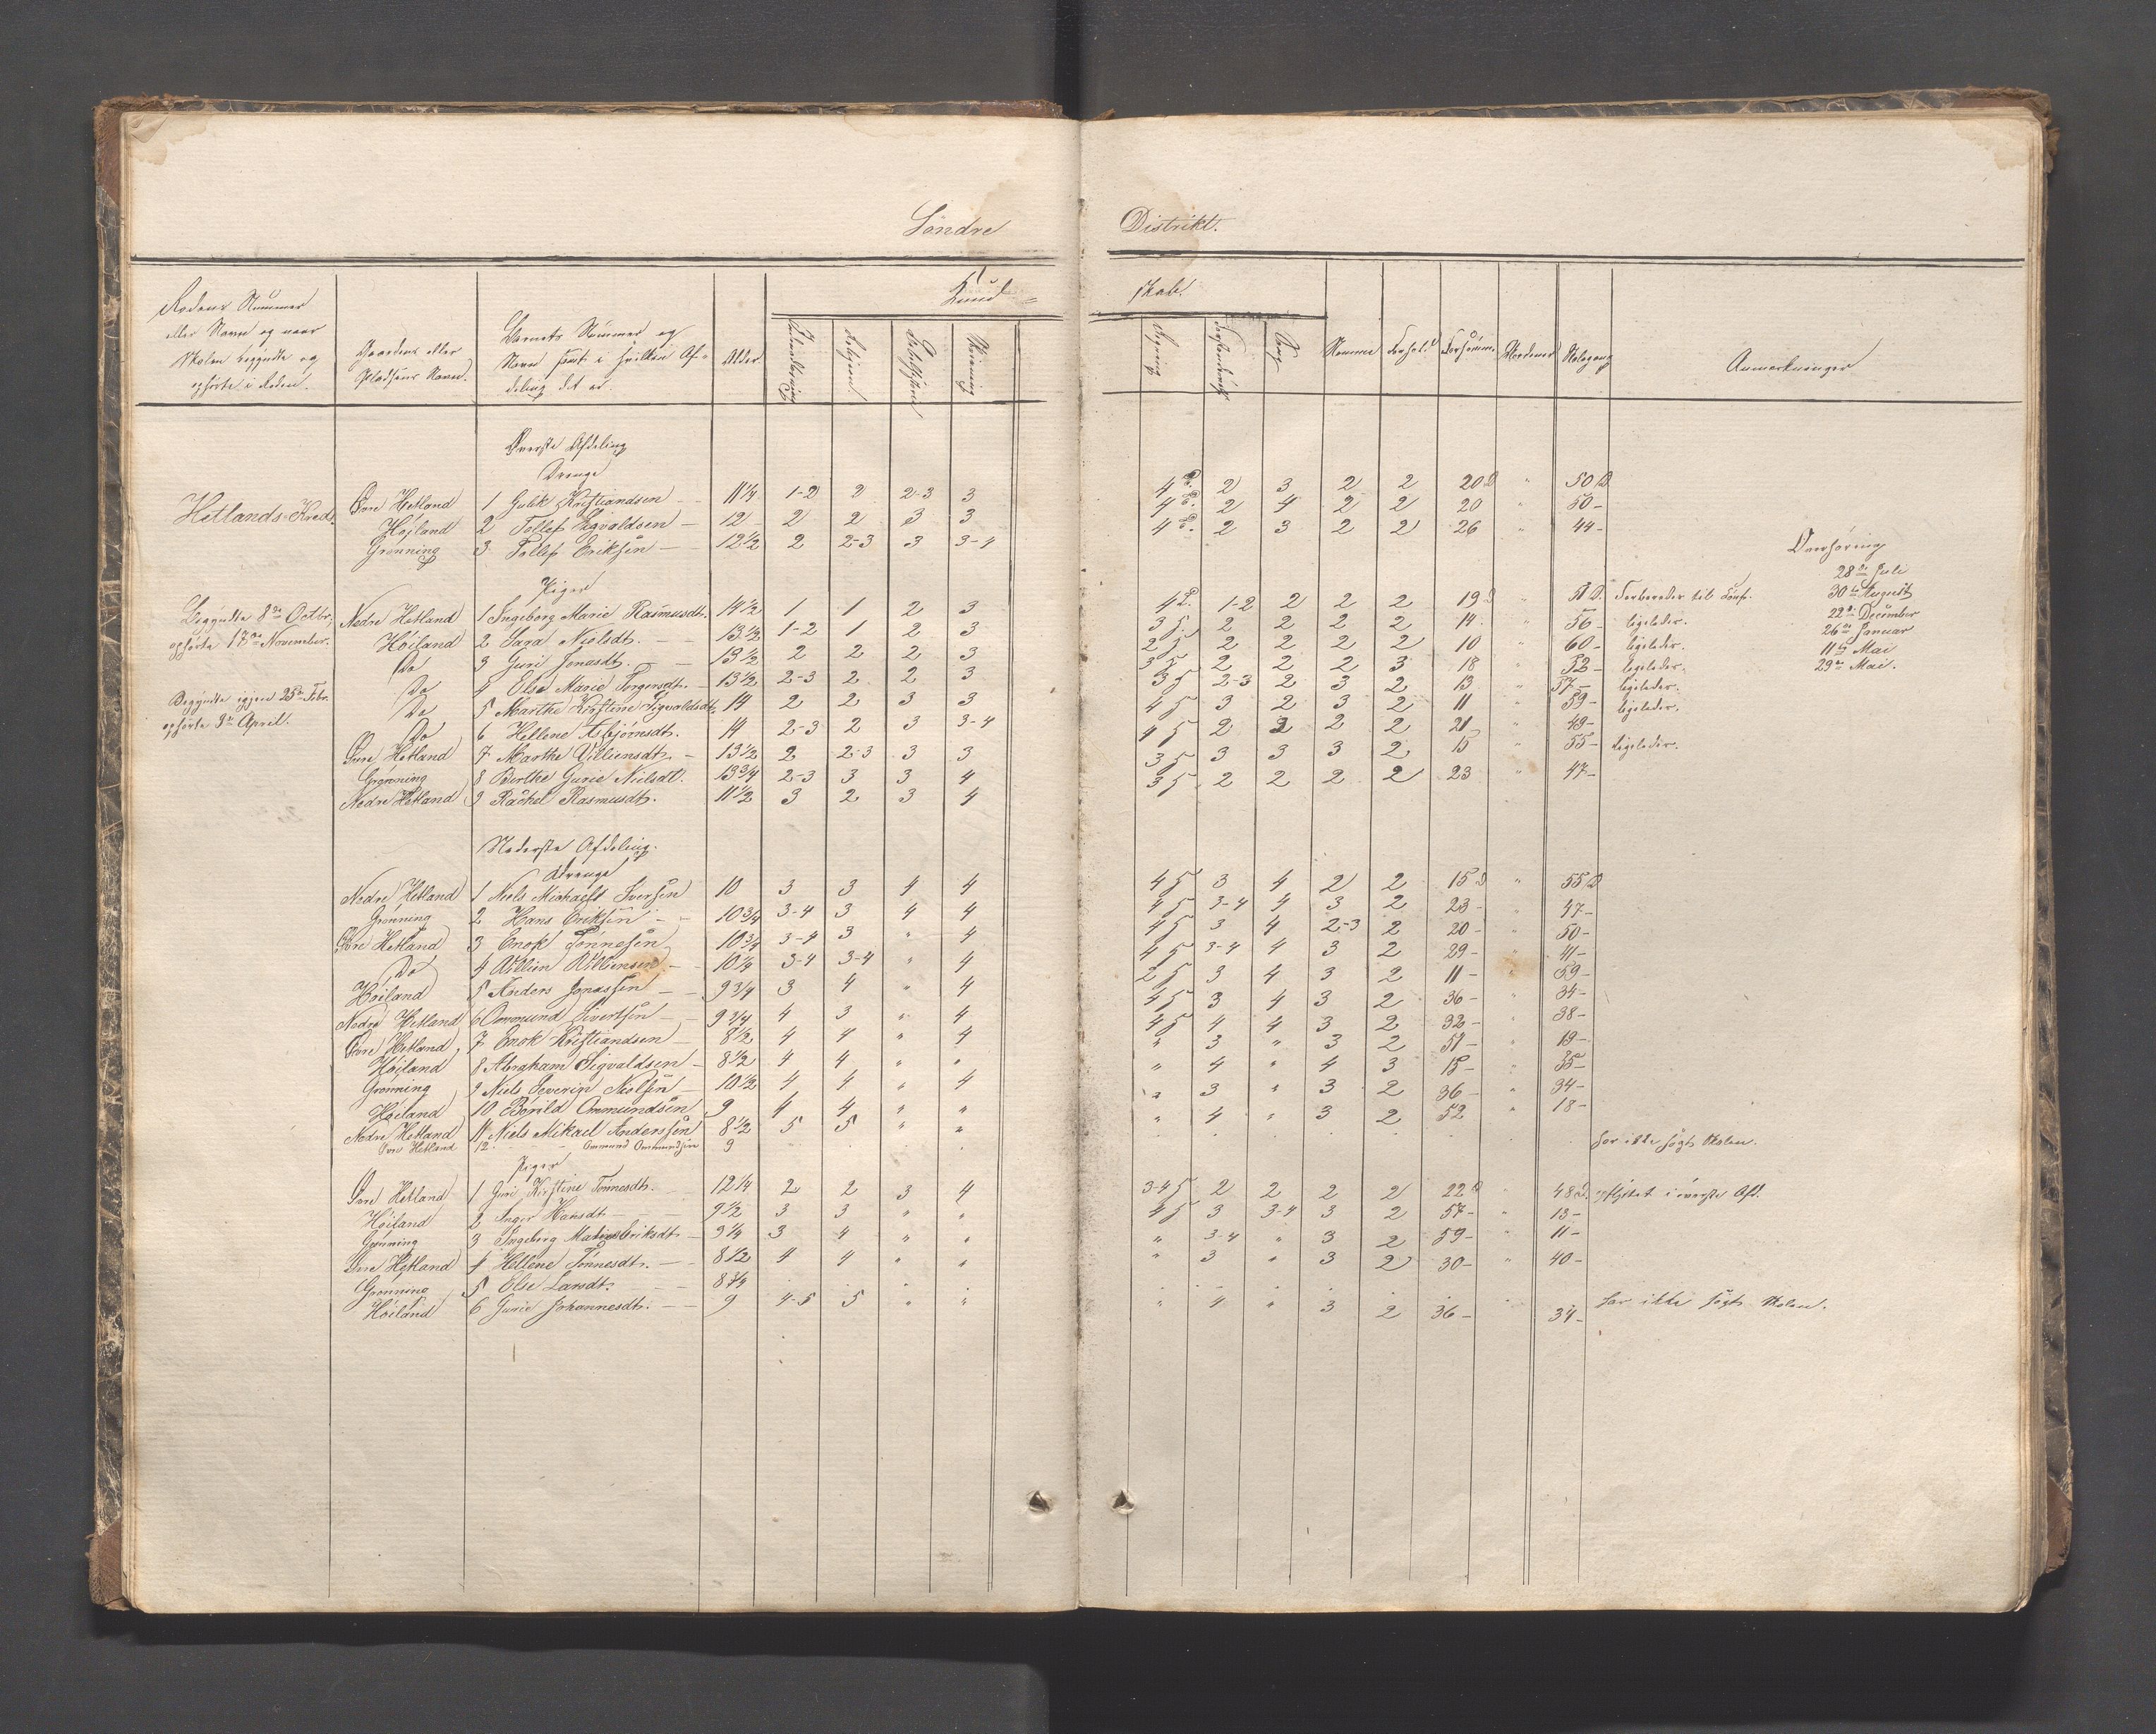 Söndre Distrikt.
Rodens Nummer eller Navn og naar Skolen begyndte og ophørte i Roden.
Gaardens eller Pladsens Navn.
Barnets Nummer og Navn samt i hvilken Afdeling det er.
Alder
Kundskab.
Religion.
Skrivning
Regning
Sang
Nemme
Forhold
Forsømm.
Skolegang
Anmærkninger
Øverste Afdeling
Drenge
Hetlands-Kreds
Øvre Hetland 1 Gulik Kristiandsen 11 1/4 1-2 2 2-3 3 2 3 2 2 20 D " 50 D
Höjland 2 Tollef Sigvaldsen 12 2 2 3 3 2 4 2 2 20 " 50-
Grønning 3 Tollef Eriksen 12 1/2 2 2-3 3 3-4 2 3 2 2 26 " 44-
Overhøring
28de Juli
30te August
22de December
26de Januar
11te Mai
29de Mai.
Piger
Begyndte 8de Octbr. ophørte 17de November.
Begyndte igjen 25de Febr. ophørte 9de April.
Nedre Hetland 1 Ingeborg Marie Rasmusdt. 14 1/2 1 1 2 3 1-2 2 2 2 19 D " 51 D. Forbereder til Conf.
Höiland 2 Sara Nielsdt. 13 1/2 1-2 1 2 3 35 2 2 2 2 14 " 56- ligeleder.
Do 3 Guri Jonasdt. 13 1/2 2 2 2 3 25 2 2 2 2 10 " 60- ligeleder.
Do 4 Else Marie Torgersdt. 13 1/2 2-3 2 2 3 35 2 2 2 3 18 " 52- ligeleder.
Do 5 Marthe Kirstine Sigvaldsdt. 14 2 2 3 3 35 2-3 2 3 2 13 " 57- ligeleder.
Do 6 Hellene Asbjörnsdt. 14 2-3 2 3 3-4 45 3 2 3 2 11 " 59- ligeleder.
Øvre Hetland 7 Marthe Villiensdt. 13 1/2 2 2-3 3 3 45 2 2 2 2 21 " 49-
Grønning 8 Berthe Gurie Nielsdt. 13 3/4 2-3 3 3 4 35 3 3 3 2 15 " 55- ligeleder.
Nedre Hetland 9 Rachel Rasmusdt. 11 1/2 3 2 3 4 35 2 2 2 2 23 " 47-
Nederste Afdeling.
Drenge
Nedre Hetland 1 Niels Michael Iversen 10 3 3 4 4 45 3 4 2 2 15 D " 55 D
Grønning 2 Hans Eriksen 10 3/4 3-4 3 4 4 45 3-4 4 3 2 23- " 47-
Øvre Hetland 3 Enok Tønnesen 10 3/4 3-4 3 " 4 45 3 4 2-3 2 20- " 50-
Do 4 Villien Villiensen 10 1/4 3-4 3-4 " 4 45 3-4 4 3 2 29- " 41-
Höiland 5 Anders Jonassen 9 3/4 3 4 " 4 25 3 4 3 2 11- " 59-
Nedre Hetland 6 Ommund Sivertsen 9 3/4 4 3 " 4 45 3 4 3 2 36- " 34-
Øvre Hetland 7 Enok Kristiandsen 8 1/2 4 4 " 4 45 4 4 3 2 32- " 38-
Höiland 8 Abraham Sigvaldsen 8 1/2 4 4 " " " 3 " 3 2 51- " 19-
Grønning 9 Niels Severin Nielsen 10 1/2 4 4 " 4 " 4 " 4 3 15- " 35-
Höiland 10 Börild Ommundsen 9 4 4 " " " 3 " 3 2 36- " 34-
Nedre Hetland 11 Niels Mikael Anderssen 8 1/2 5 5 " " " 4 " 3 2 52 " 18-
Øvre Hetland 12 Ommund Ommundsen 9 har ikke søgt Skolen.
Piger
Øvre Hetland 1 Guri Kirstine Tönnesdt. 12 1/4 2 2 3 4 3-45 2 2 2 2 22 D " 48 D. opflyttet i øverste Afd.
Höiland 2 Inger Hansdt 9 1/2 3 3 " " 45 3 3-4 3 2 57- " 13-
Grønning 3 Ingeborg Eriksdt 9 1/4 3 4 " " " 3-4 " 3 2 59- " 11-
Øvre Hetland 4 Hellene Tönnesdt. 8 1/2 4 4 " " " 3 " 3 2 30- " 40-
Grønning 5 Else Larsdt. 8 3/4 har ikke søgt Skolen.
Höiland 6 Gurie Johannesdt. 9 4-5 5 " " " 4 " 3 2 36- 34-